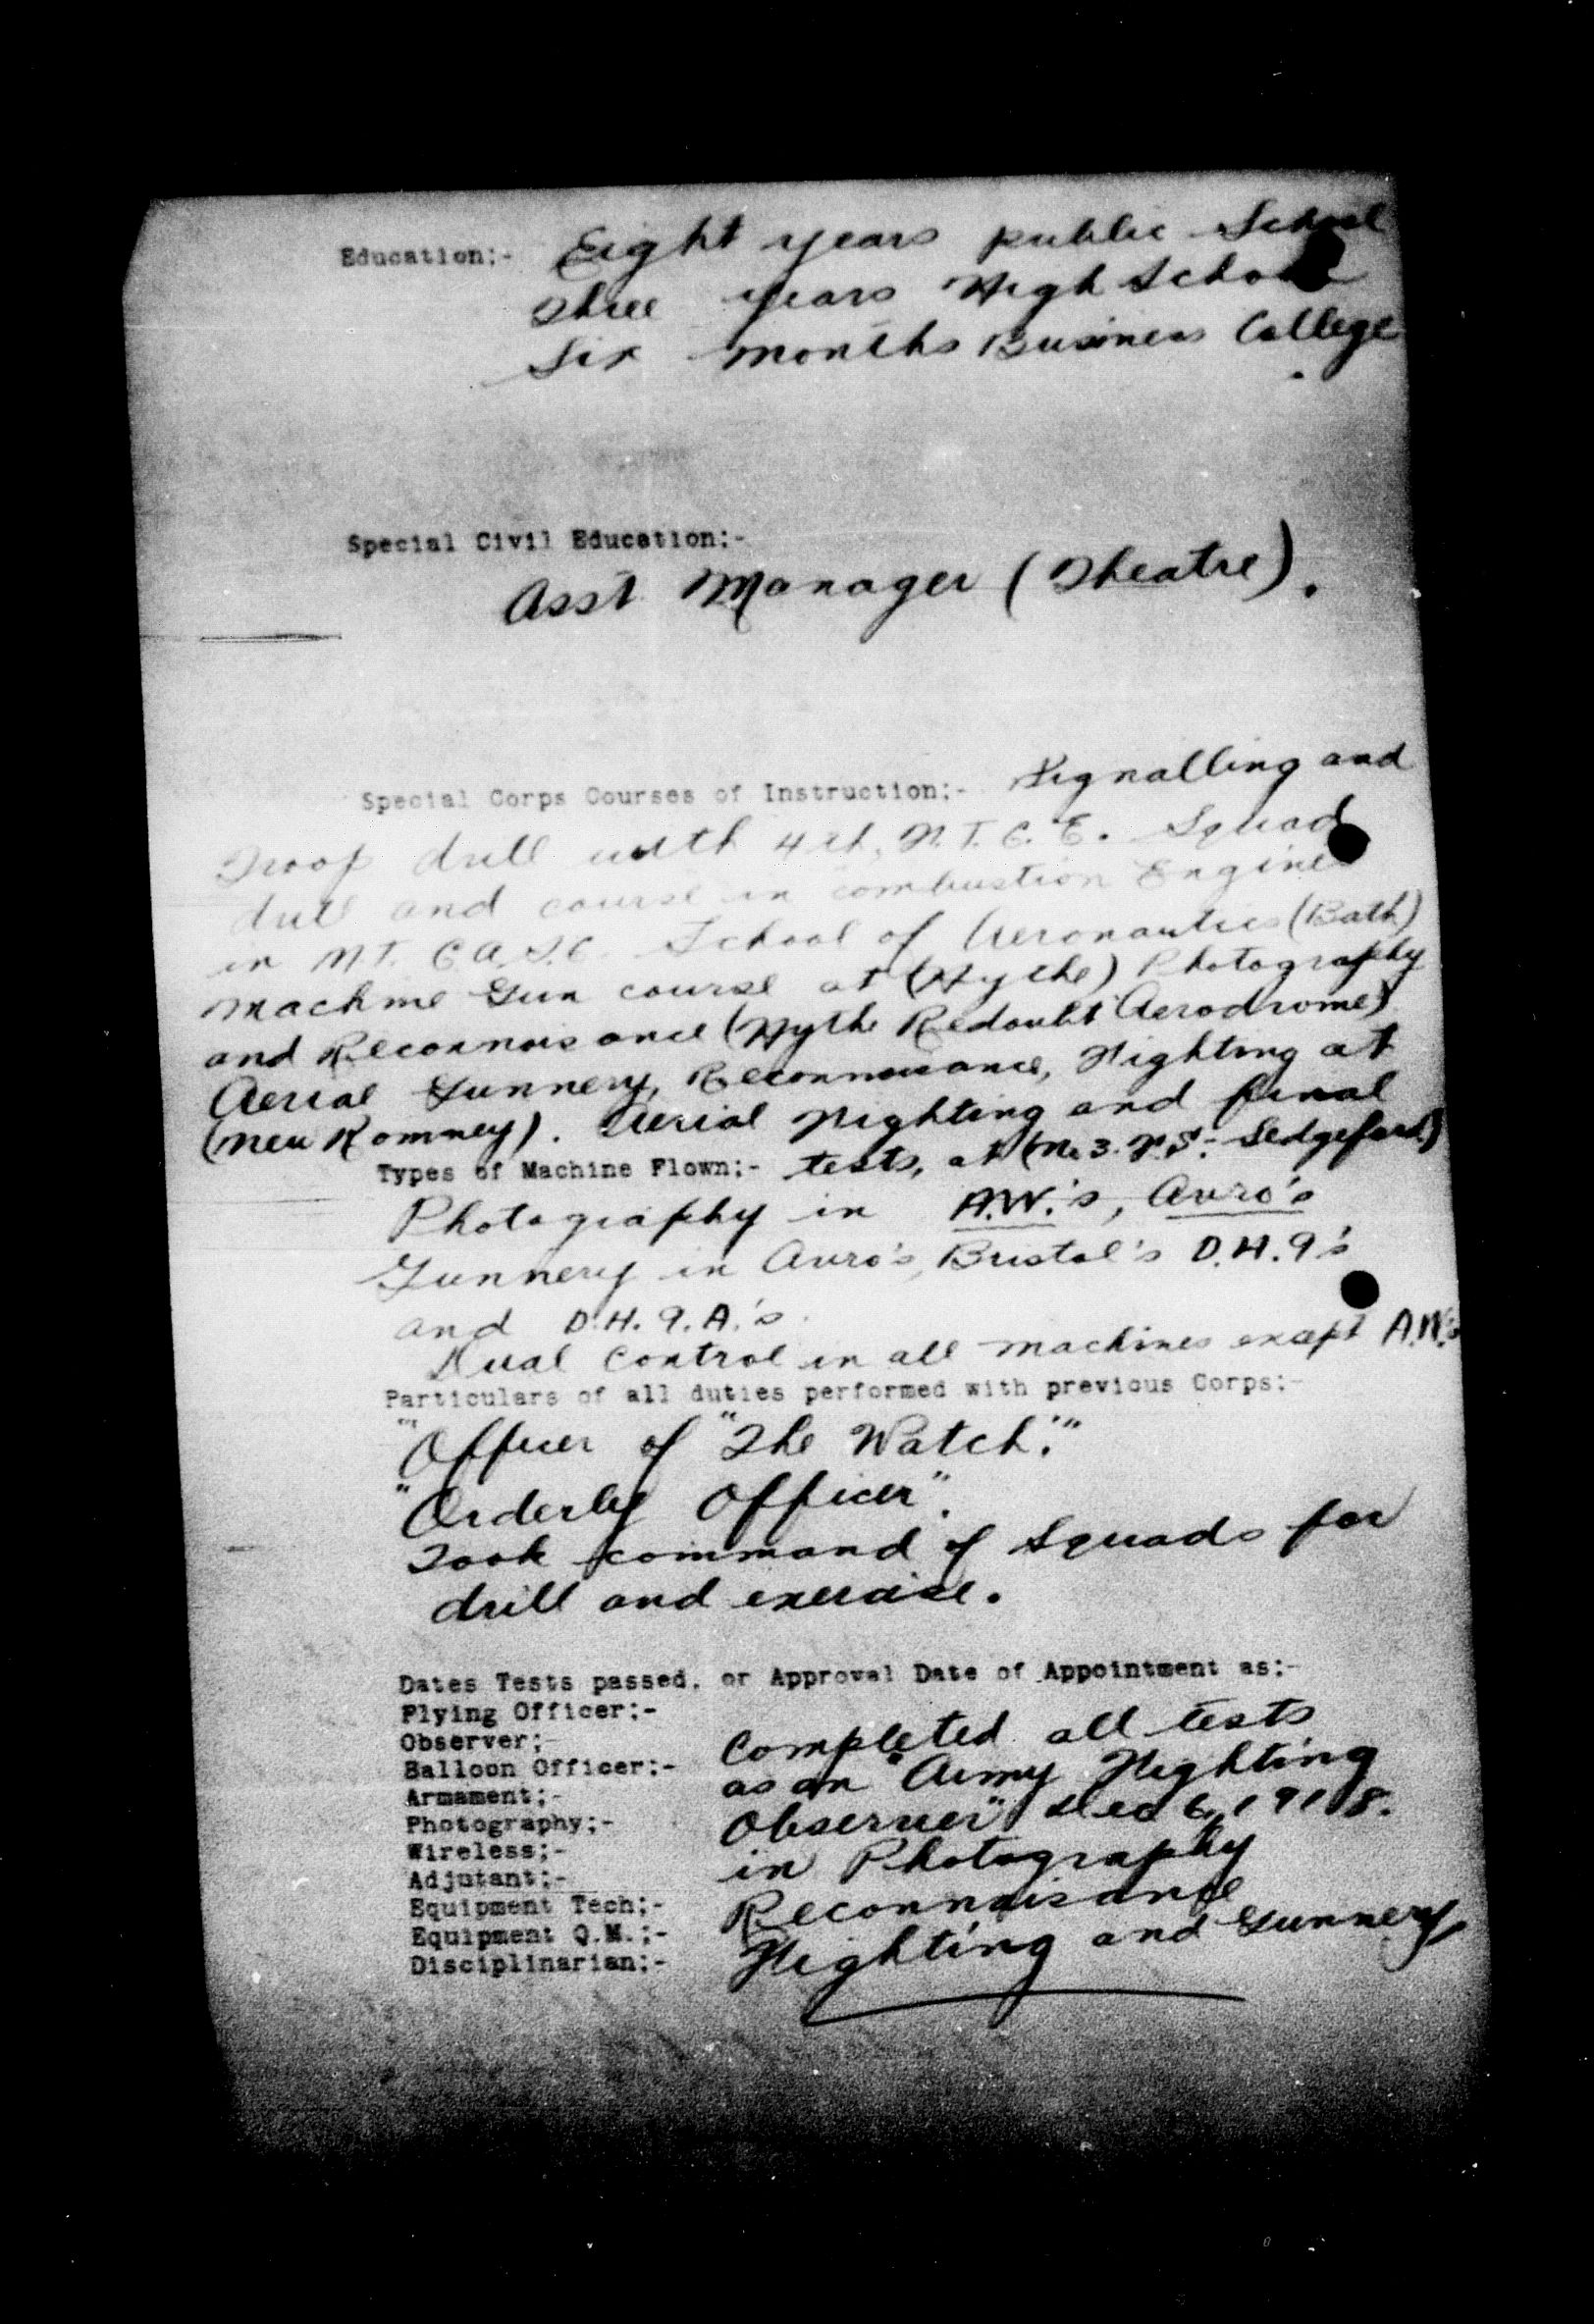 Education:- Eight years public School
Three years High School
Six months Business College
Special Civil Education:-
Asst Manager (Theatre).
Special Corps Courses of Instruction:- Signalling and
Troop drill with 4th, F.T.C.E. Squad
drill and course in combustion Engines
in M.T. C.A.S.C. School of Aeronautics (Bath)
Machine Gun course at (Hythe) Photography
and Reconnoisance (Hythe Redoubt Aerodrome)
Aerial Gunnery, Reconnoisance, Fighting at
(New Romney). Aerial Fighting and final
Types of Machine Flown:- tests, at (No 3. F.S:- Sedgeford)
Photography in A.W.'s, Avro's
Gunnery in Avro's, Bristol's D.H.9's
and D.H.9.A.'s.
Dual Control in all machines except A.W.'s
Particulars of all duties performed with previous Corps:-
"Officer of "The Watch"."
"Orderly Officer".
Took command of Squads for
drill and exercise.
Dates Tests passed, or Approval Date of Appointment as:-
Flying Officer:-
Observer:- Completed all tests
Balloon Officer:- as an "Army Fighting
Armament:-
Photography:- Observer" Dec 6, 1918.
Wireless:- in Photography
Adjutant:-
Equipment Tech:- Reconnaisance
Equipment Q.M.:- Fighting and Gunnery
Disciplinarian:-